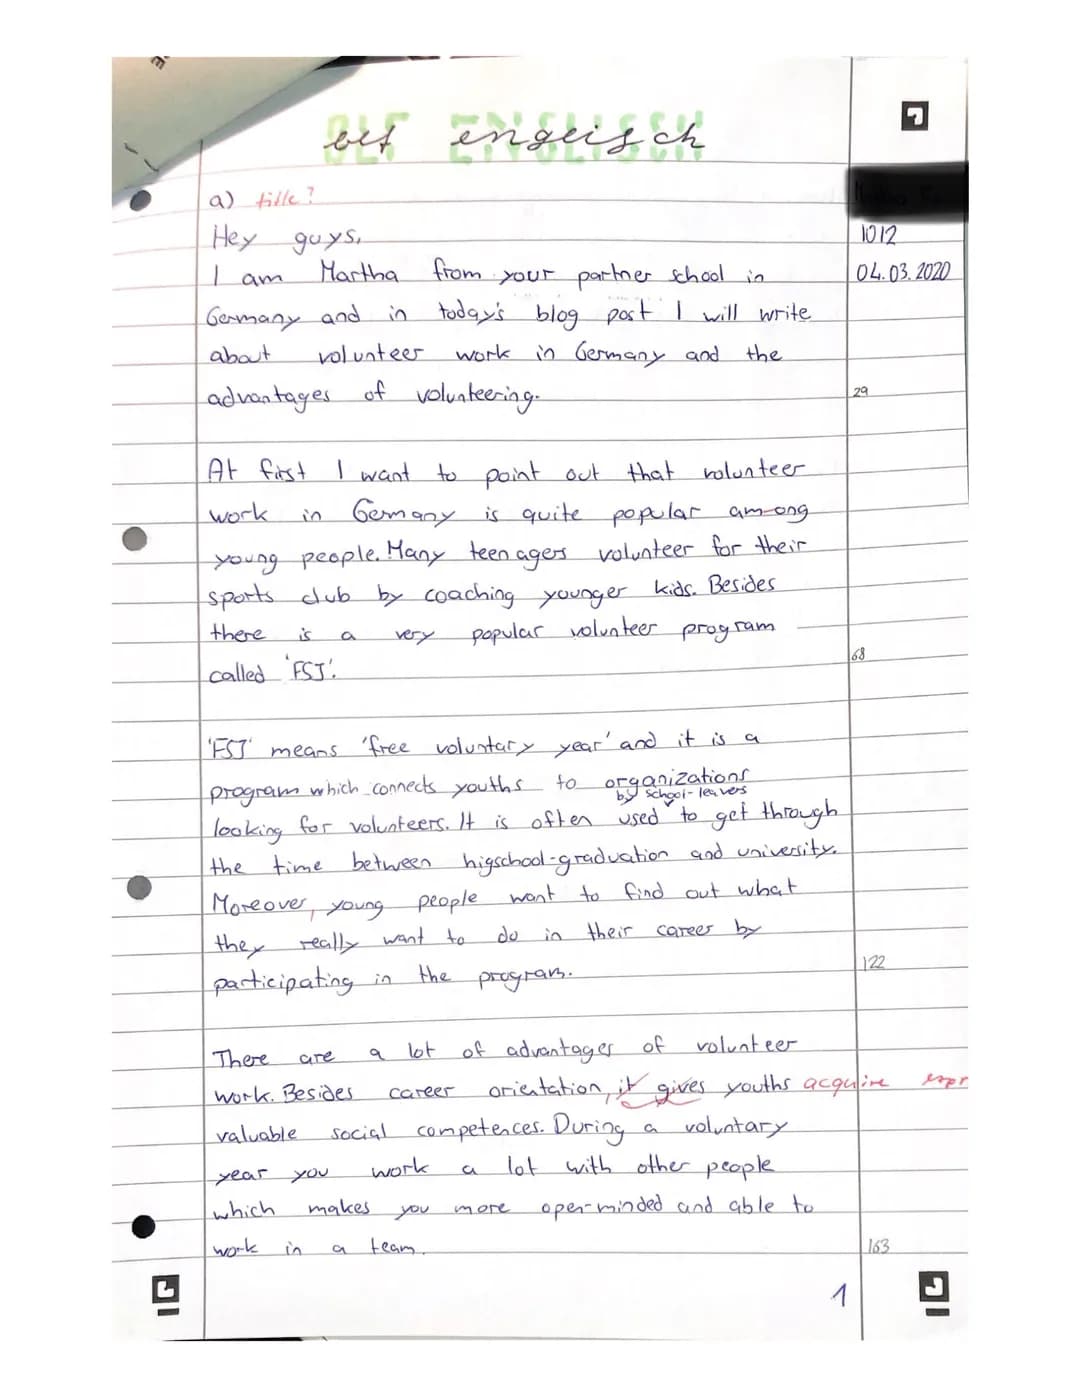 BLF ENGLISCH
blf englisch
a) title?
Hey guys,
1012
I am Martha from your partner school in
04.03.2020
Germany and in today's blog post I will write
about volunteer work in Germany and the
advantages of volunteering.
29
At first I want to point out that volunteer
work in Germany is quite popular among
young people. Many teenagers volunteer for their
sports club by coaching younger kids. Besides
there is a very popular volunteer program
called 'FSJ'.
68
'FSJ' means 'free voluntary year' and it is a
program which connects youths to organizations
by school-leavers
looking for volunteers. It is often used to get through
the time between higschool-graduation and university.
Moreover, young people want to find out what
they really want to do in their career by
participating in the program.
122
There are a lot of advantages of volunteer
work. Besides career orientation, it gives youths acquire expr
valuable social competences. During a voluntary
year you work a lot with other people
which makes you more open-minded and able to
work in a team.
163
1